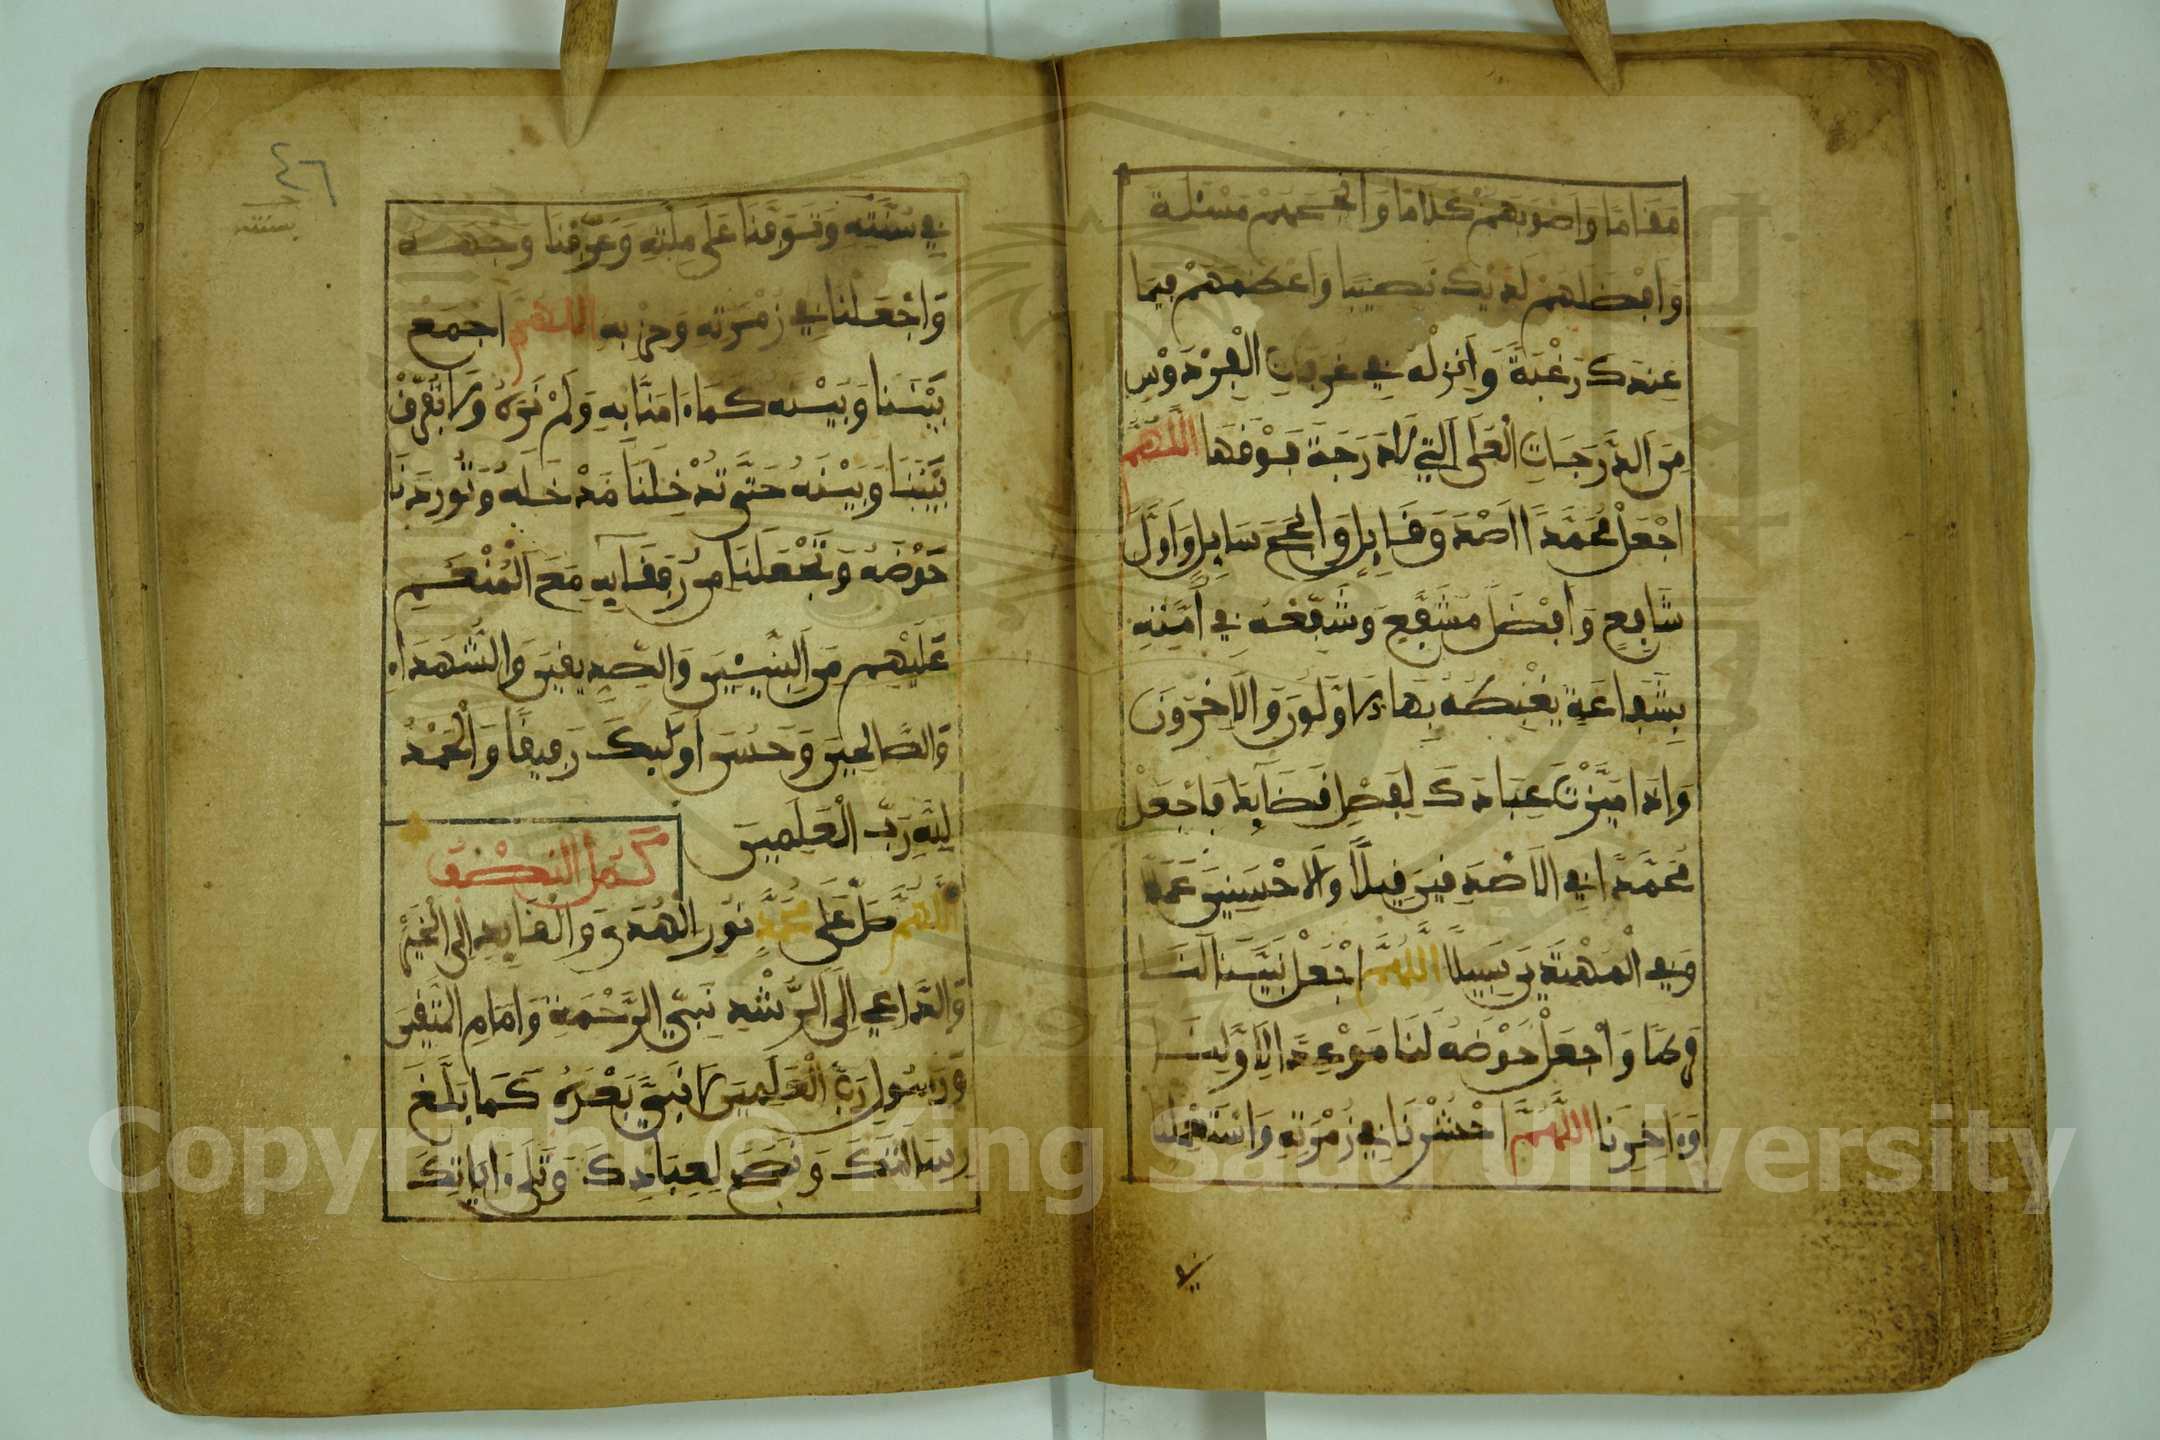 مَقَامًا وَأَصْوَبَهُمْ كَلَامًا وَأَنْجَحَهُمْ مَسْئَلَةً
وَأَفْضَلَهُمْ لَدَيْكَ نَصِيبًا وَأَعْظَمَهُمْ فِيمَا
عِنْدَكَ رَغْبَةً وَأَنْزِلْهُ فِي غُرُفَاتِ الْفِرْدَوْسِ
مِنَ الدَّرَجَاتِ الْعُلَى الَّتِي لَا دَرَجَةَ فَوْقَهَا اللَّهُمَّ
اجْعَلْ مُحَمَّدًا أَصْدَقَ قَائِلٍ وَأَنْجَحَ سَائِلٍ وَأَوَّلَ
شَافِعٍ وَأَفْضَلَ مُشَفَّعٍ وَشَفِّعْهُ فِي أُمَّتِهِ
بِشَفَاعَةٍ يَغْبِطُهُ بِهَا الْأَوَّلُونَ وَالْآخِرُونَ
وَإِذَا مَيَّزْتَ عِبَادَكَ لِفَصْلِ قَضَائِهِ فَاجْعَلْ
مُحَمَّدًا فِي الْأَصْدَقِينَ قِيلًا وَالْأَحْسَنِينَ عَمَلًا
وَفِي الْمَهْدِيِّينَ سَبِيلًا اللَّهُمَّ اجْعَلْ نَبِيَّنَا لَنَا
فَرَطًا وَاجْعَلْ حَوْضَهُ لَنَا مَوْعِدًا لِأَوَّلِنَا
وَءَاخِرِنَا اللَّهُمَّ احْشُرْنَا فِي زُمْرَتِهِ وَاسْتَعْمِلْنَا
في
٤٦
فِي سُنَّتِهِ وَتَوَفَّنَا عَلَى مِلَّتِهِ وَعَرِّفْنَا وَجْهَهُ
وَاجْعَلْنَا فِي زُمْرَتِهِ وَحِزْبِهِ اللَّهُمَّ اجْمَعْ
بَيْنَنَا وَبَيْنَهُ كَمَا ءَامَنَّا بِهِ وَلَمْ نَرَهُ وَلَا تُفَرِّقْ
بَيْنَنَا وَبَيْنَهُ حَتَّى تُدْخِلَنَا مَدْخَلَهُ وَتُورِدَنَا
حَوْضَهُ وَتَجْعَلَنَا مِنْ رُفَقَائِهِ مَعَ الْمُنْعَمِ
عَلَيْهِمْ مِنَ النَّبِيِّينَ وَالصِّدِّيقِينَ وَالشُّهَدَاءِ
وَالصَّالِحِينَ وَحَسُنَ أُولَئِكَ رَفِيقًا وَالْحَمْدُ
لِلَّهِ رَبِّ الْعَلَمِينَ
كمل النصف
اللَّهُمَّ صَلِّ عَلَى مُحَمَّدٍ نُورِ الْهُدَى وَالْقَائِدِ إِلَى الْخَيْرِ
وَالدَّاعِي إِلَى الرُّشْدِ نَبِيِّ الرَّحْمَةِ وَإِمَامِ الْمُتَّقِينَ
وَرَسُولِ رَبِّ الْعَلَمِينَ لَا نَبِيَّ بَعْدَهُ كَمَا بَلَّغَ
رِسَالَتَكَ وَنَصَحَ لِعِبَادِكَ وَتَلَا ءَايَاتِكَ
Copyright © King Saud University
1957